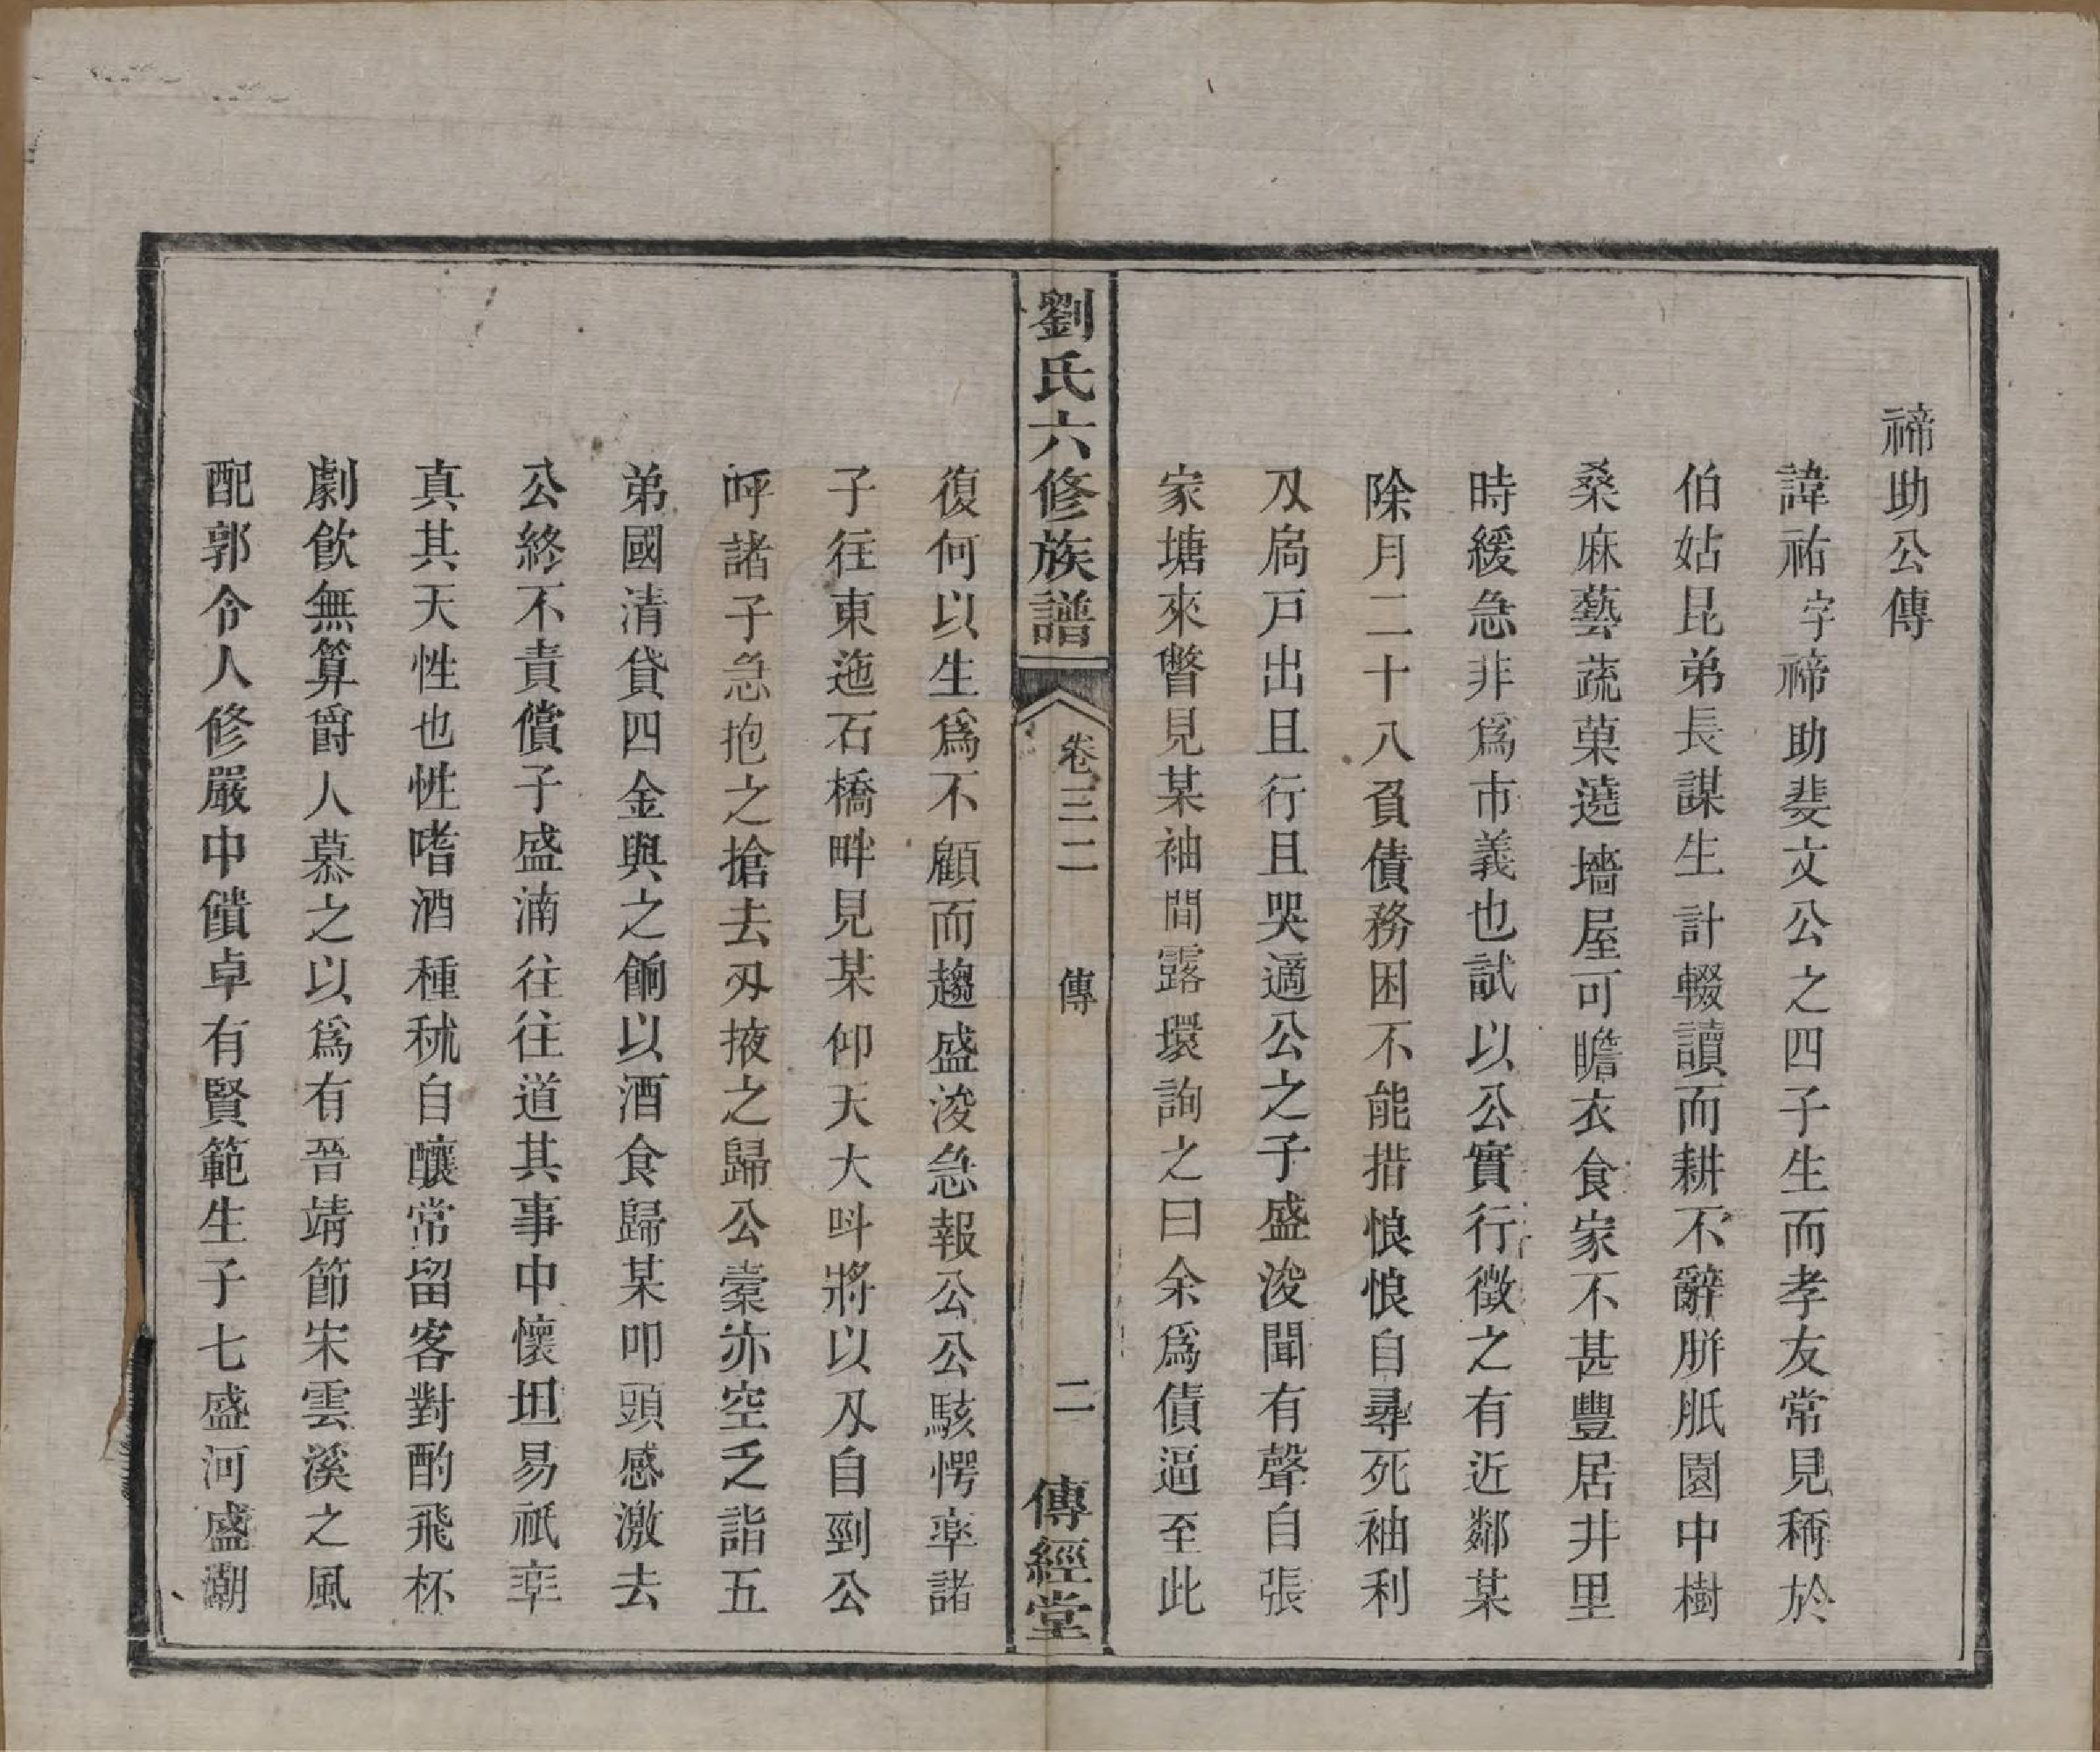 禘助公傳
諱祐字禘助斐文公之四子生而孝友常見稱於
伯姑昆弟長謀生計輟讀而耕不辭胼胝園中樹
桑麻藝蔬菓遶墻屋可瞻衣食家不甚豐居井里
時緩急非爲市義也試以公實行徵之有近鄰某
除月二十八負債務困不能措悢悢自尋死袖利
刄扃戸出且行且哭適公之子盛浚聞有聲自張
家塘來瞥見某袖間露環詢之曰余爲債逼至此
劉氏六修族譜
卷三二
傳
二
傳經堂
復何以生爲不顧而趨盛浚急報公公駭愕率諸
子往東迤石橋畔見某仰天大呌將以刄自剄公
呼諸子急抱之搶去刄掖之歸公槖亦空乏詣五
弟國清貸四金與之餉以酒食歸某叩頭感激去
公終不責償子盛湳往往道其事中懷坦易祇率
真其天性也性嗜酒種秫自釀常留客對酌飛杯
劇飲無算爵人慕之以爲有晉靖節宋雲溪之風
配郭令人修嚴中饋卓有賢範生子七盛河盛潮